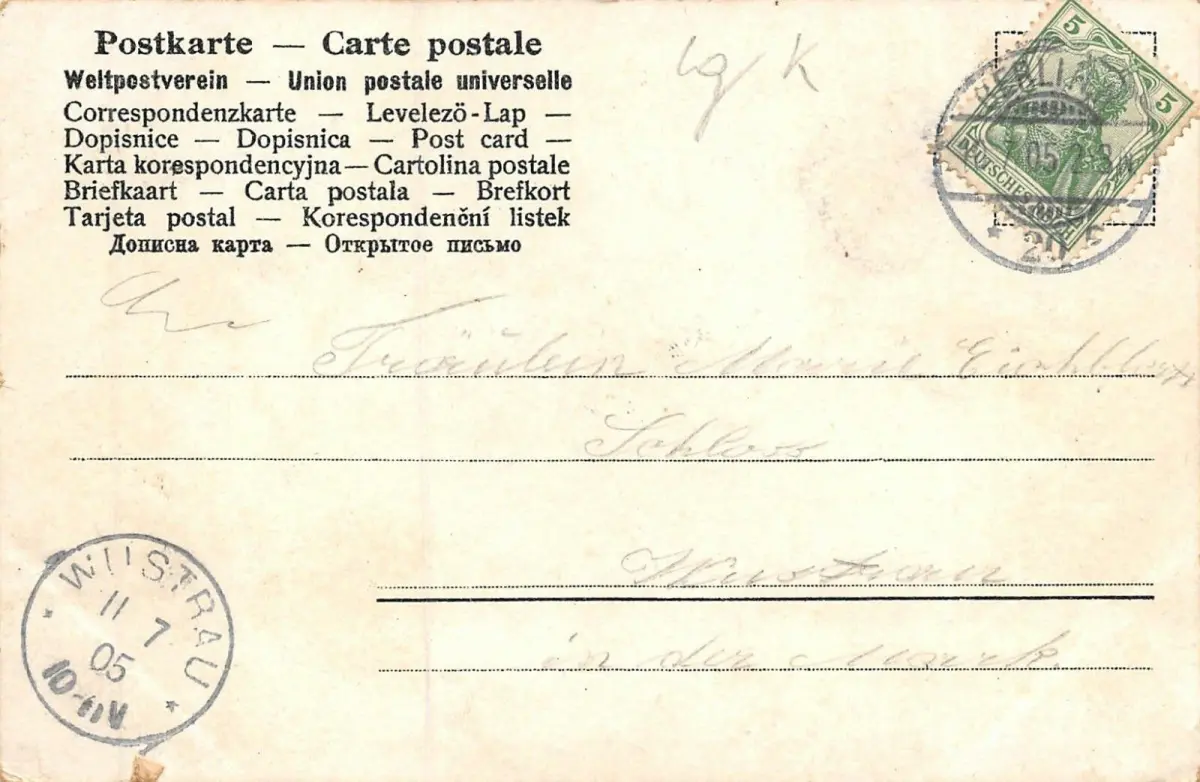 Postkarte — Carte postale
Weltpostverein — Union postale universelle
Correspondenzkarte — Levelező-Lap —
Dopisnice — Dopisnica — Post card —
Karta korespondencyjna — Cartolina postale
Briefkaart — Carta postala — Brefkort
Tarjeta postal — Korespondenční listek
Дописна карта — Открытое письмо
5
5
BERLIN
7 05 2-3 N
DEUTSCHES
An
Fräulein Marie
Schloss
Wustrau
in der Mark.
WUSTRAU
11 7
05